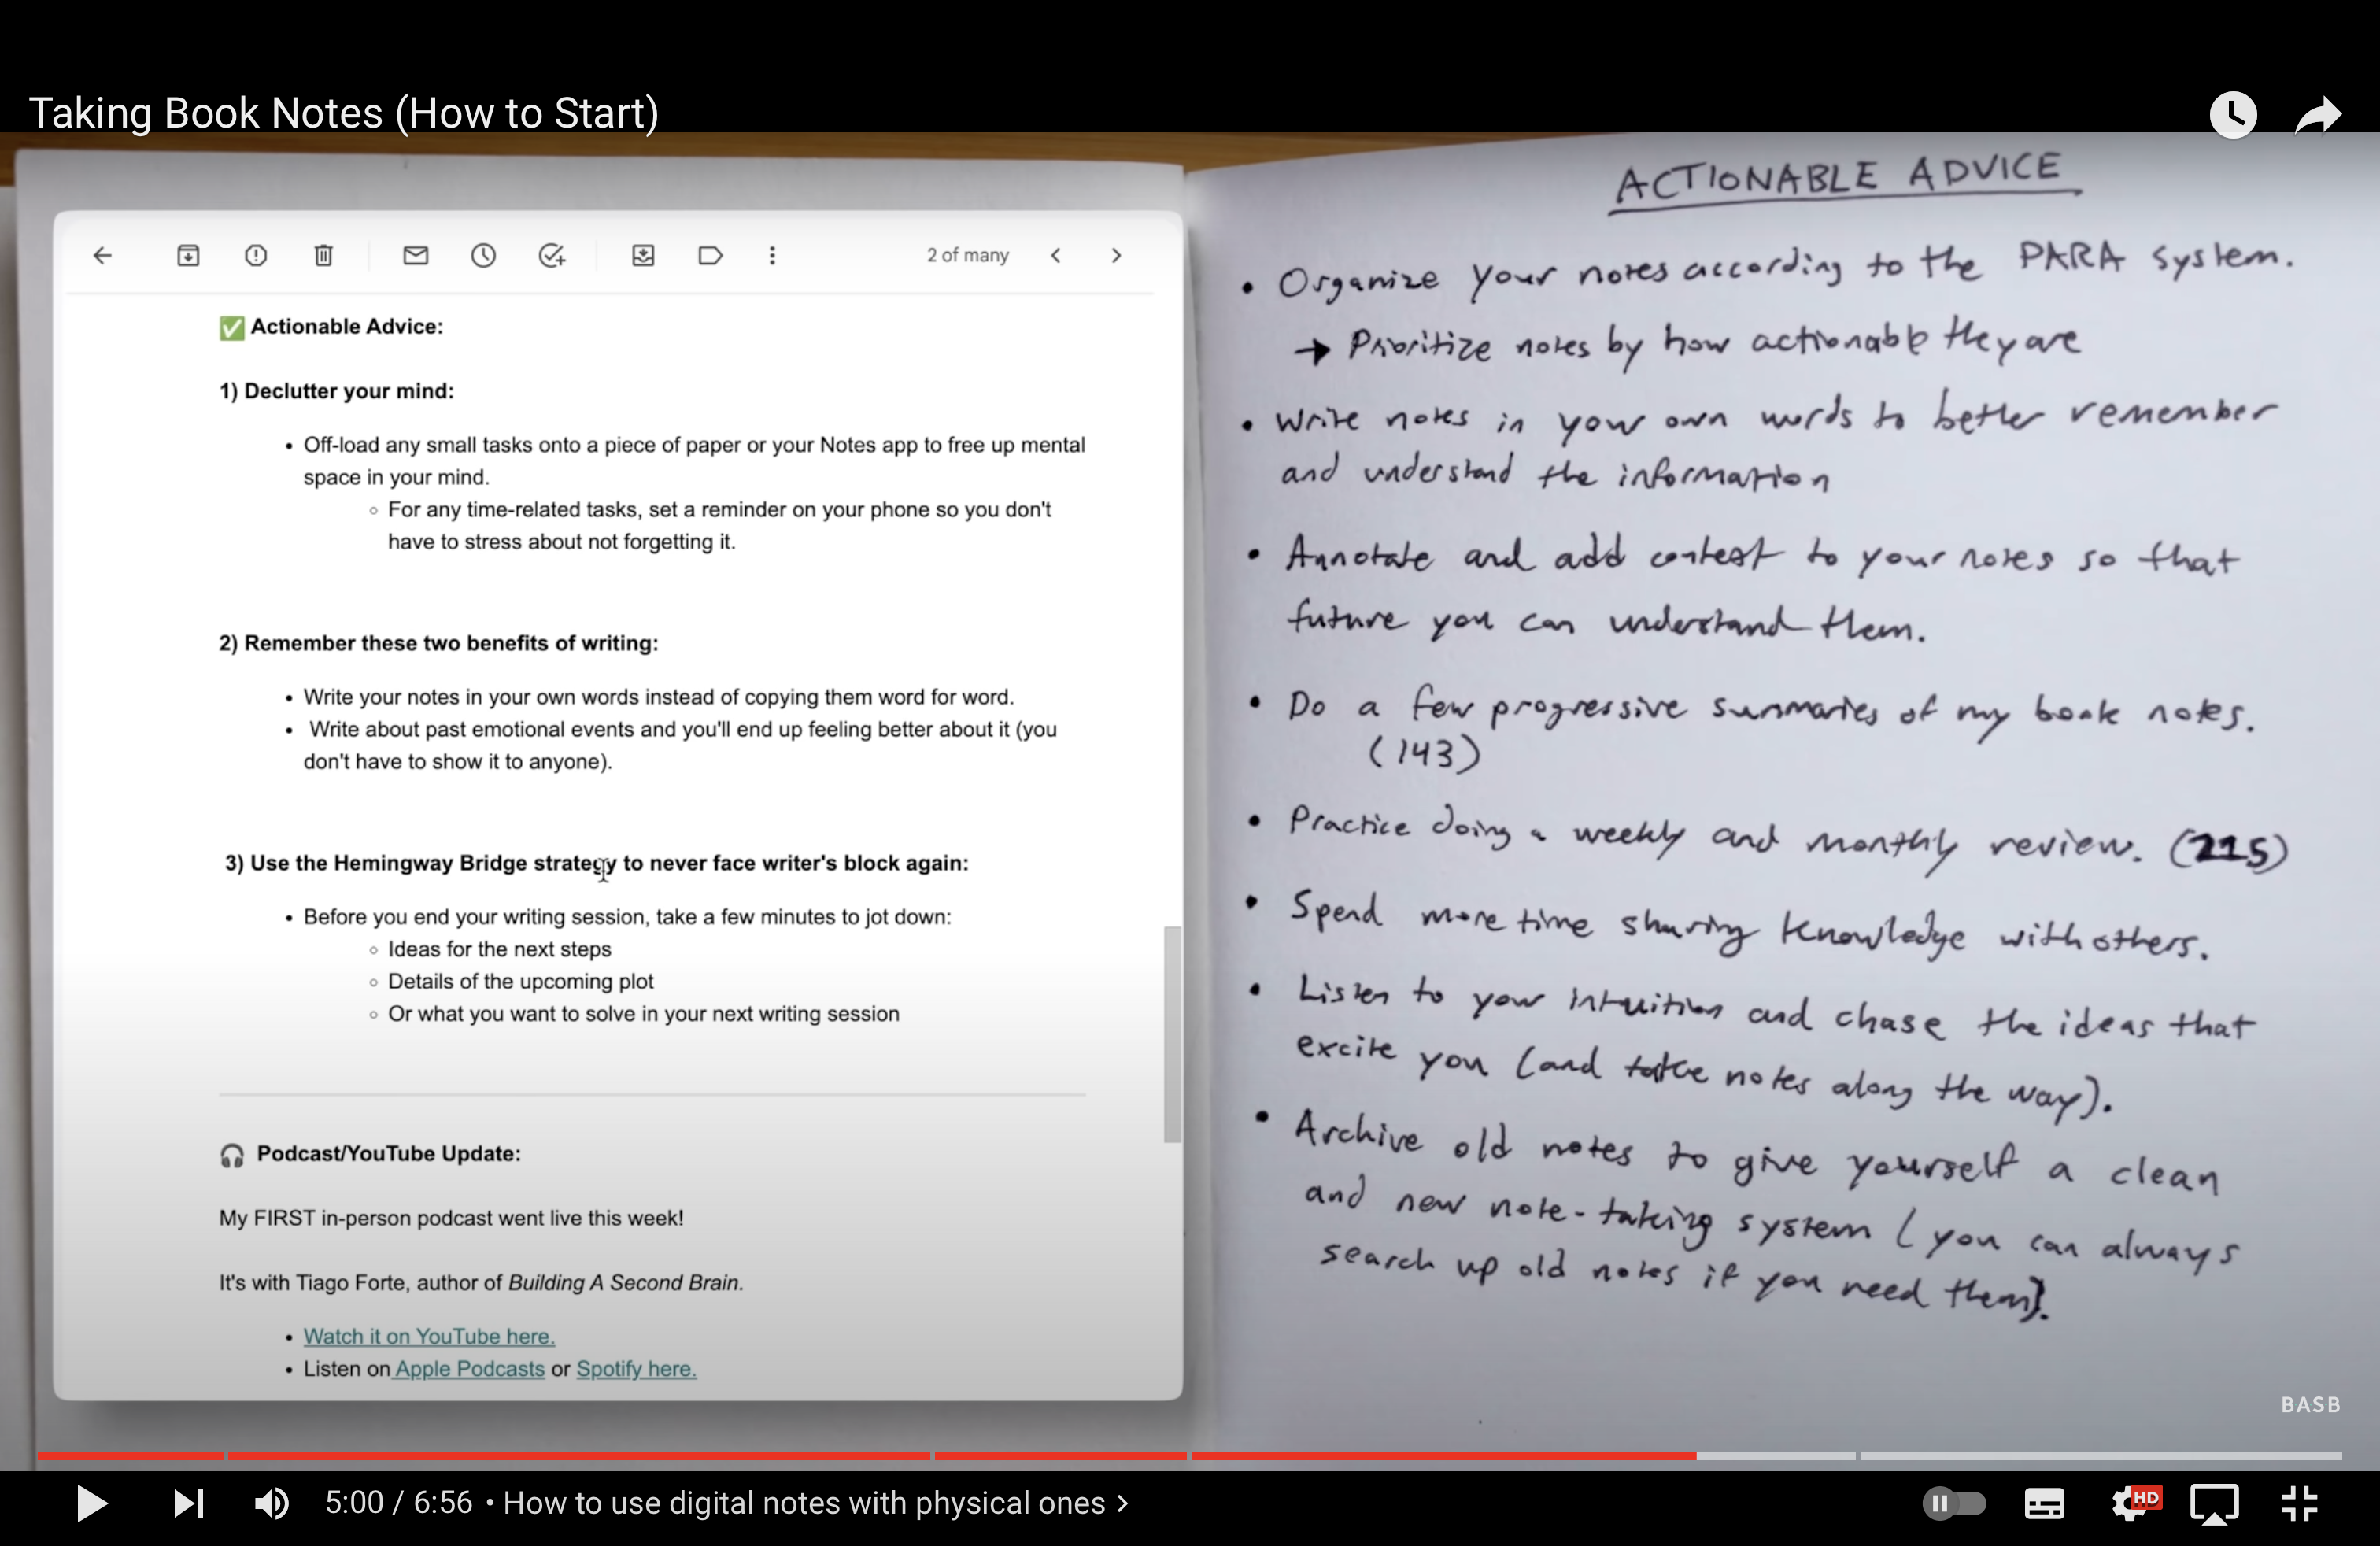 Taking Book Notes (How to Start)
2 of many
✅ Actionable Advice:
1) Declutter your mind:
• Off-load any small tasks onto a piece of paper or your Notes app to free up mental
space in your mind.
◦ For any time-related tasks, set a reminder on your phone so you don't
have to stress about not forgetting it.
2) Remember these two benefits of writing:
• Write your notes in your own words instead of copying them word for word.
• Write about past emotional events and you'll end up feeling better about it (you
don't have to show it to anyone).
3) Use the Hemingway Bridge strategy to never face writer's block again:
• Before you end your writing session, take a few minutes to jot down:
◦ Ideas for the next steps
◦ Details of the upcoming plot
◦ Or what you want to solve in your next writing session
🎧 Podcast/YouTube Update:
My FIRST in-person podcast went live this week!
It's with Tiago Forte, author of Building A Second Brain.
• Watch it on YouTube here.
• Listen on Apple Podcasts or Spotify here.
ACTIONABLE ADVICE
• Organize your notes according to the PARA system.
→ Prioritize notes by how actionable they are
• Write notes in your own words to better remember
and understand the information
• Annotate and add context to your notes so that
future you can understand them.
• Do a few progressive summaries of my book notes.
(143)
• Practice doing a weekly and monthly review. (215)
• Spend more time sharing knowledge with others.
• Listen to your intuition and chase the ideas that
excite you (and take notes along the way).
• Archive old notes to give yourself a clean
and new note-taking system (you can always
search up old notes if you need them).
BASB
5:00 / 6:56 • How to use digital notes with physical ones >
HD